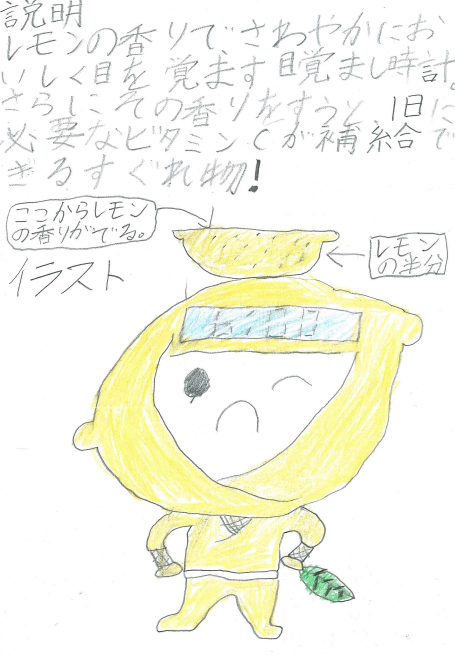 説明
レモンの香りで、さわやかにお
いしく目を覚ます目覚まし時計。
さらにその香りをすうと、1日に
必要なビタミンCが補給で
きるすぐれ物!
ここからレモン
の香りがでる。
レモン
の半分
イラスト